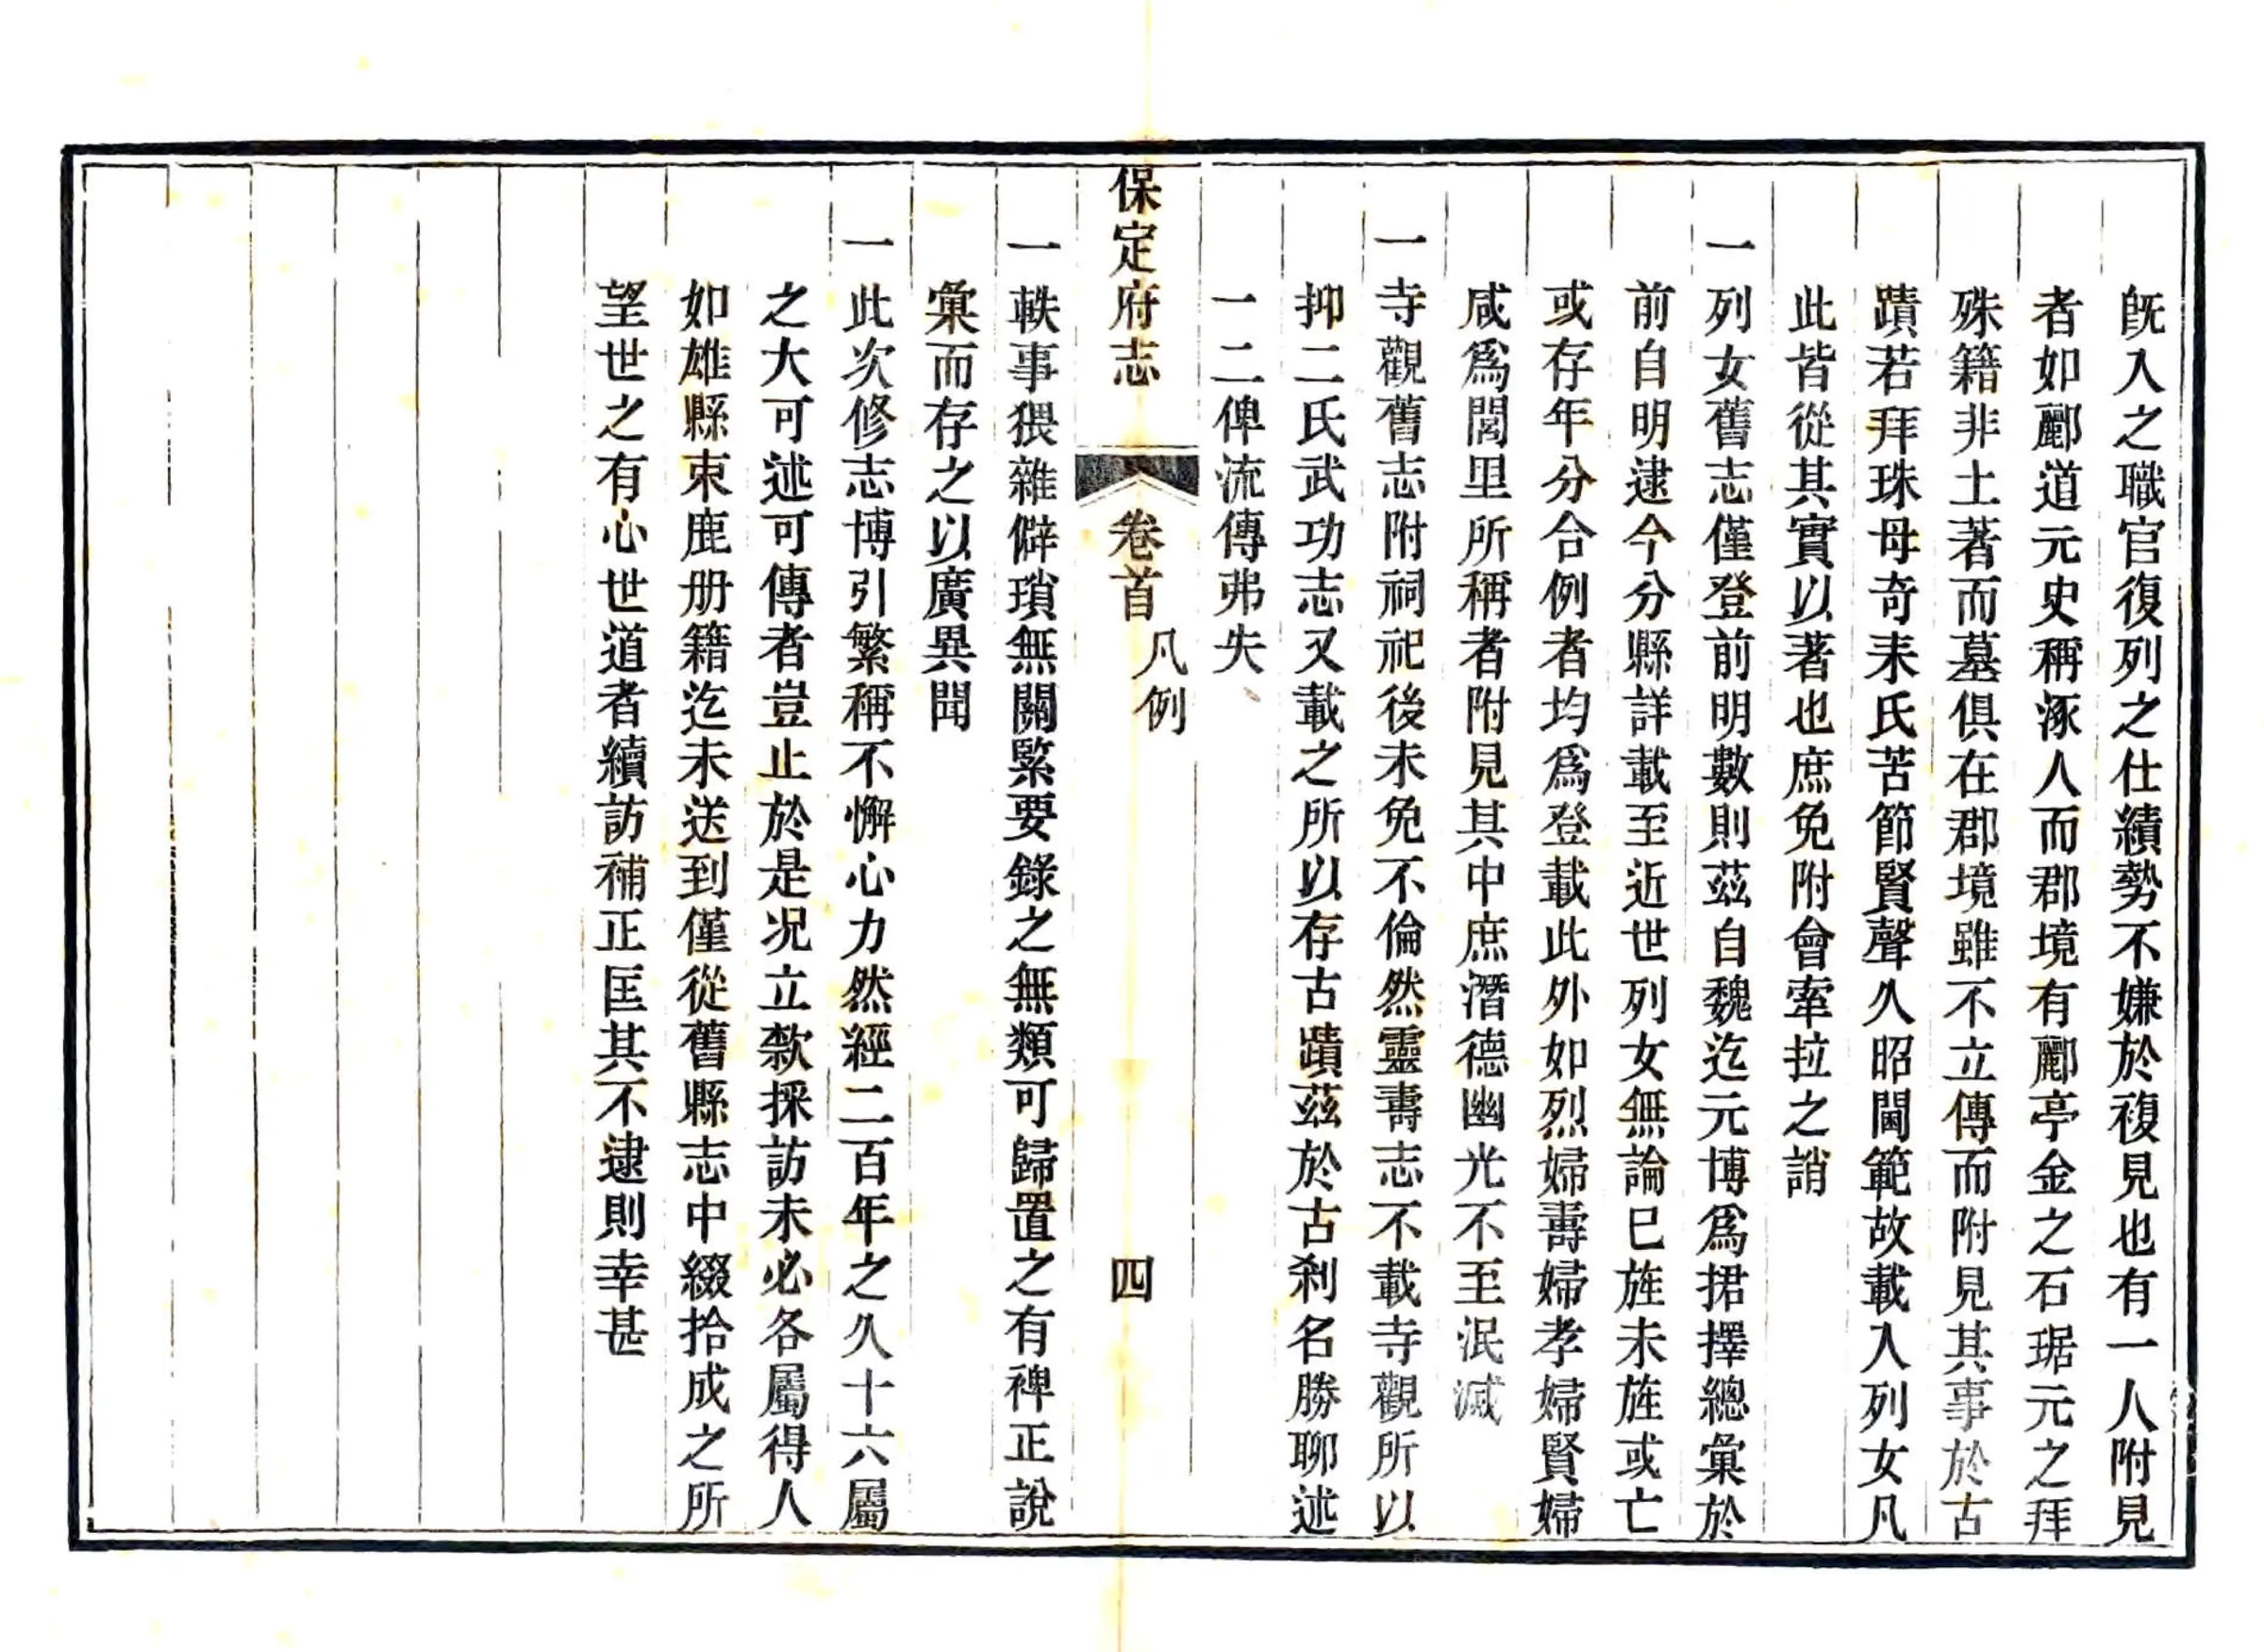 旣入之職官復列之仕績勢不嫌於複見也有一人附見
者如酈道元史稱涿人而郡境有酈亭金之石琚元之拜
殊籍非土著而墓俱在郡境雖不立傳而附見其事於古
蹟若拜珠母奇耒氏苦節賢聲久昭閫範故載入列女凡
此皆從其實以著也庶免附會牽拉之誚
一列女舊志僅登前明數則茲自魏迄元博爲捃擇總彙於
前自明逮今分縣詳載至近世列女無論已旌未旌或亡
或存年分合例者均爲登載此外如烈婦壽婦孝婦賢婦
咸爲閭里所稱者附見其中庶潛德幽光不至泯滅
一寺觀舊志附祠祀後未免不倫然靈壽志不載寺觀所以
抑二氏武功志又載之所以存古蹟茲於古刹名勝聊述
一二俾流傳弗失
保定府志 卷首 凡例 四
一軼事猥雜僻瑣無關緊要錄之無類可歸置之有裨正說
彙而存之以廣異聞
一此次修志博引繁稱不懈心力然經二百年之久十六屬
之大可述可傳者豈止於是况立欵採訪未必各屬得人
如雄縣束鹿册籍迄未送到僅從舊縣志中綴拾成之所
望世之有心世道者續訪補正匡其不逮則幸甚